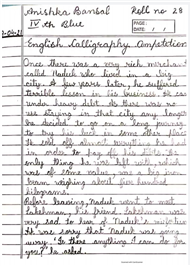 Anishka Bansal Roll no 28
IV th Blue PAGE:
DATE: / /
English Calligraphy Competition
Once there was a very rich merchant
called Naduk who lived in a big
city. A few years later, he suffered
terrible loss in his business. He was
under heavy debt. As there was no
use staying in that city any longer
he decided to go on a long journey
to try his luck in some other place
He sold off almost everything he had
in order to pay off his debts. The
only thing he was left with, which
was of some value, was a big iron
beam weighing about five hundred
kilograms.
Before leaving, Naduk went to meet
Lakshman, his friend. Lakshman was
very sad to hear of Naduk's misfortune
He was sorry that Naduk was going
away. "Is there anything I can do for
you?" he asked.